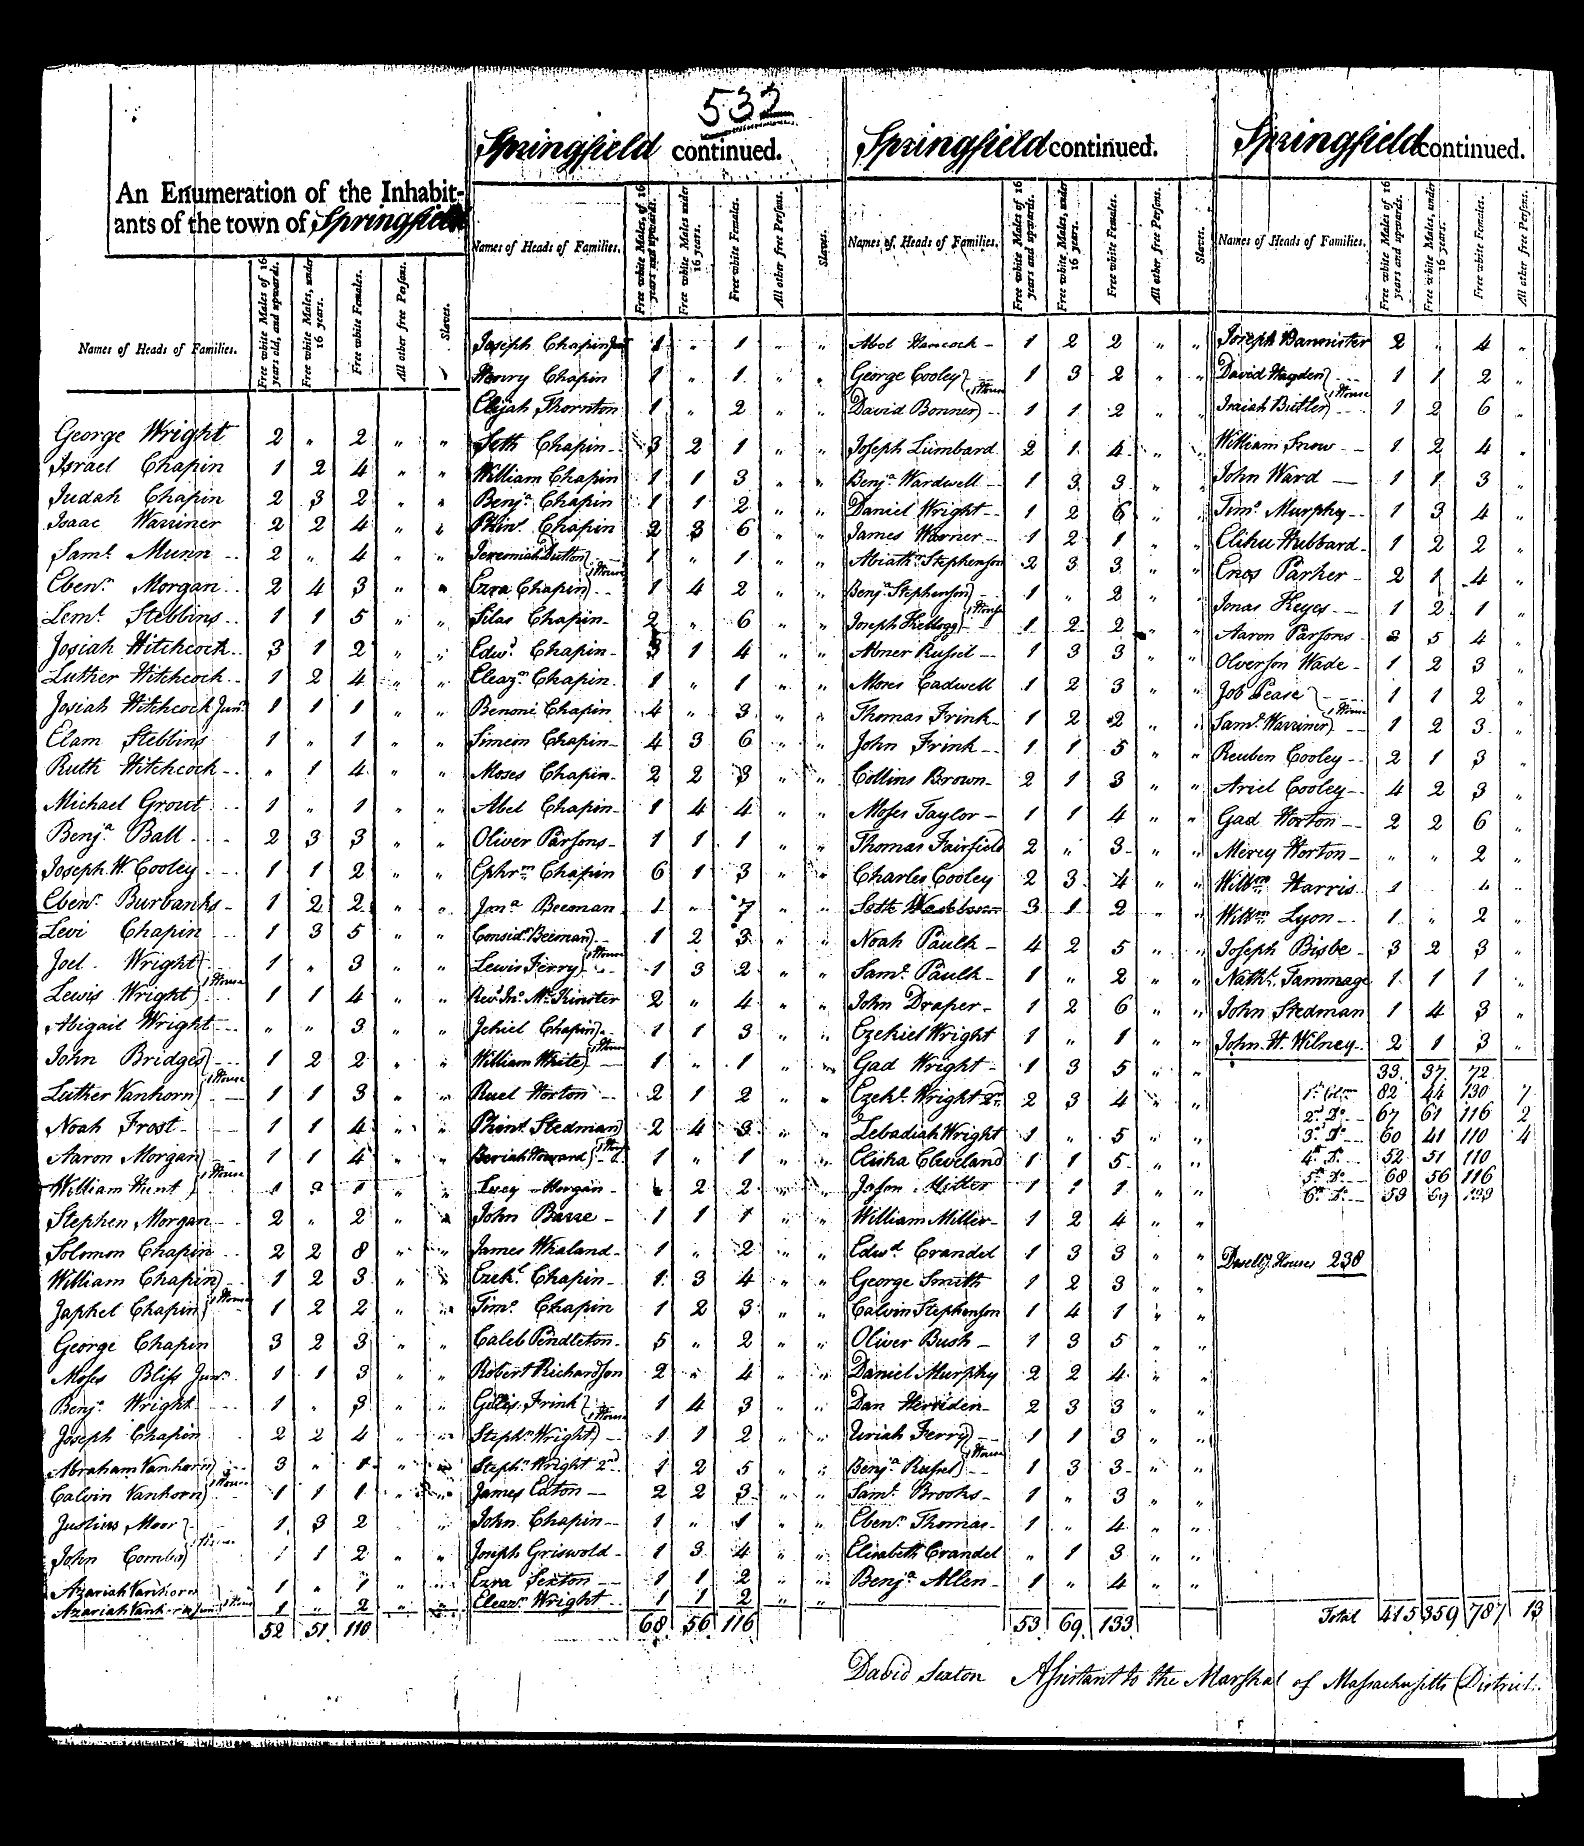 532
An Enumeration of the Inhabit-
ants of the town of Springfield
Names of Heads of Families.
Free white Males of 16 years old, and upwards.
Free white Males, under 16 years.
Free white Females.
All other free Persons.
Slaves.
George Wright 2 " 2 " "
Israel Chapin 1 2 4 " "
Judah Chapin 2 3 2 " "
Isaac Warriner 2 2 4 " "
Saml. Munn 2 " 4 " "
Ebenr. Morgan 2 4 3 " "
Leml. Stebbins 1 1 5 " "
Josiah Hitchcock 3 1 2 " "
Luther Hitchcock 1 2 4 " "
Josiah Hitchcock Junr. 1 1 1 " "
Elam Stebbins 1 " 1 " "
Ruth Hitchcock " 1 4 " "
Michael Grout 1 " 1 " "
Benja. Ball 2 3 3 " "
Joseph W. Cooley 1 1 2 " "
Ebenr. Burbanks 1 2 2 " "
Levi Chapin 1 3 5 " "
Joel Wright 1 " 3 " "
1 House
Lewis Wright 1 1 4 " "
Abigail Wright " " 3 " "
John Bridges 1 2 2 " "
1 House
Luther Vanhorn 1 1 3 " "
Noah Frost 1 1 4 " "
Aaron Morgan 1 1 4 " "
1 House
William Hunt 1 3 1 " "
Stephen Morgan 2 " 2 " "
Solomon Chapin 2 2 8 " "
William Chapin 1 2 3 " "
1 House
Japhet Chapin 1 2 2 " "
George Chapin 3 2 3 " "
Moses Bliss Junr. 1 1 3 " "
Benja. Wright 1 " 3 " "
Joseph Chapin 2 2 4 " "
Abraham Vanhorn 3 " 1 " "
1 House
Calvin Vanhorn 1 1 1 " "
Justius Moor 1 3 2 " "
1 House
John Combs 1 1 2 " "
Azariah Vanhorn 1 " 1 " "
1 House
Azariah Vanhorn Junr. 1 " 2 " "
52 51 110
Springfield continued.
Names of Heads of Families.
Free white Males, of 16 years and upwards.
Free white Males under 16 years.
Free white Females.
All other free Persons.
Slaves.
Joseph Chapin Junr 1 " 1 " "
Henry Chapin 1 " 1 " "
Elijah Thornton 1 " 2 " "
Seth Chapin 3 2 1 " "
William Chapin 1 1 3 " "
Benja. Chapin 1 1 2 " "
Phins. Chapin 2 3 6 " "
Jeremiah Dutton 1 " 1 " "
1 House
Ezra Chapin 1 4 2 " "
Silas Chapin 2 " 6 " "
Edwd. Chapin 3 1 4 " "
Eleazr. Chapin 1 " 1 " "
Benoni Chapin 4 " 3 " "
Simeon Chapin 4 3 6 " "
Moses Chapin 2 2 3 " "
Abel Chapin 1 4 4 " "
Oliver Parsons 1 1 1 " "
Ephrm. Chapin 6 1 3 " "
Jona. Beeman 1 " 7 " "
Considr. Beeman 1 2 3 " "
1 House
Lewis Ferry 1 3 2 " "
Revd. Jno. McKinster 2 " 4 " "
Jehiel Chapin 1 1 3 " "
1 House
William White 1 " 1 " "
Ruel Horton 2 1 2 " "
Phins. Stedman 2 4 3 " "
1 House
Beriah Howard 1 " 1 " "
Lucy Morgan " 2 2 " "
John Barre 1 1 1 " "
James Whaland 1 " 2 " "
Ezekl. Chapin 1 3 4 " "
Timo. Chapin 1 2 3 " "
Caleb Pendleton 5 " 2 " "
Robert Richardson 2 " 4 " "
Giles Frink 1 4 3 " "
1 House
Stephn. Wright 1 1 2 " "
Stephn. Wright 2nd. 1 2 5 " "
James Eaton 2 2 3 " "
John Chapin 1 " 1 " "
Joseph Griswold 1 3 4 " "
Ezra Sexton 1 1 2 " "
Eleazr. Wright 1 1 2 " "
68 56 116
Springfield continued.
Names of Heads of Families.
Free white Males of 16 years and upwards.
Free white Males, under 16 years.
Free white Females.
All other free Persons.
Slaves.
Abel Hancock 1 2 2 " "
George Cooley 1 3 2 " "
1 House
David Bonner 1 1 2 " "
Joseph Lumbard 2 1 4 " "
Benja. Wardwell 1 3 3 " "
Daniel Wright 1 2 6 " "
James Warner 1 2 1 " "
Abiathr. Stephenson 2 3 3 " "
Benja. Stephenson 1 " 2 " "
1 House
Joseph Kellogg 1 2 2 " "
Abner Russel 1 3 3 " "
Moses Cadwell 1 2 3 " "
Thomas Frink 1 2 2 " "
John Frink 1 1 5 " "
Collins Brown 2 1 3 " "
Moses Taylor 1 1 4 " "
Thomas Fairfield 2 " 3 " "
Charles Cooley 2 3 4 " "
Seth Washburn 3 1 2 " "
Noah Paulk 4 2 5 " "
Saml. Paulk 1 " 2 " "
John Draper 1 2 6 " "
Ezekiel Wright 1 " 1 " "
Gad Wright 1 3 5 " "
Ezekl. Wright 2nd. 2 3 4 " "
Zebadiah Wright 1 " 5 " "
Elisha Cleveland 1 1 5 " "
Jason Miller 1 1 1 " "
William Miller 1 2 4 " "
Edwd. Crandel 1 3 3 " "
George Smith 1 2 3 " "
Calvin Stephenson 1 4 1 " "
Oliver Bush 1 3 5 " "
Daniel Murphy 2 2 4 " "
Dan Heriden 2 3 3 " "
Uriah Ferry 1 1 3 " "
1 House
Benja. Russel 1 3 3 " "
Saml. Brooks 1 " 3 " "
Ebenr. Thomas 1 " 4 " "
Elisabeth Crandel " 1 3 " "
Benja. Allen 1 " 4 " "
53 69 133
Springfield continued.
Names of Heads of Families.
Free white Males of 16 years and upwards.
Free white Males, under 16 years.
Free white Females.
All other free Persons.
Joseph Bannister 2 " 4 "
David Hagden 1 1 2 "
1 House
Isaiah Butler 1 2 6 "
William Snow 1 2 4 "
John Ward 1 1 3 "
Timo. Murphy 1 3 4 "
Elihu Hubbard 1 2 2 "
Enos Parker 2 1 4 "
Jonas Keyes 1 2 1 "
Aaron Parsons 2 5 4 "
Olverson Wade 1 2 3 "
Job Pease 1 1 2 "
1 House
Saml. Warriner 1 2 3 "
Reuben Cooley 2 1 3 "
Ariel Cooley 4 2 3 "
Gad Horton 2 2 6 "
Mercy Horton " " 2 "
Willm. Harris 1 " 4 "
Willm. Lyon 1 " 2 "
Joseph Bisbe 3 2 3 "
Nathl. Tammage 1 1 1 "
John Stedman 1 4 3 "
John H. Wilney 2 1 3 "
33 37 72
1st. Colm. 82 44 130 7
2nd. Do. 67 61 116 2
3d. Do. 60 41 110 4
4th. Do. 52 51 110
5th. Do. 68 56 116
6th. Do. 53 69 133
Dwellg. Houses 238
Total 415 359 787 13
David Sexton Assistant to the Marshal of Massachusetts District.